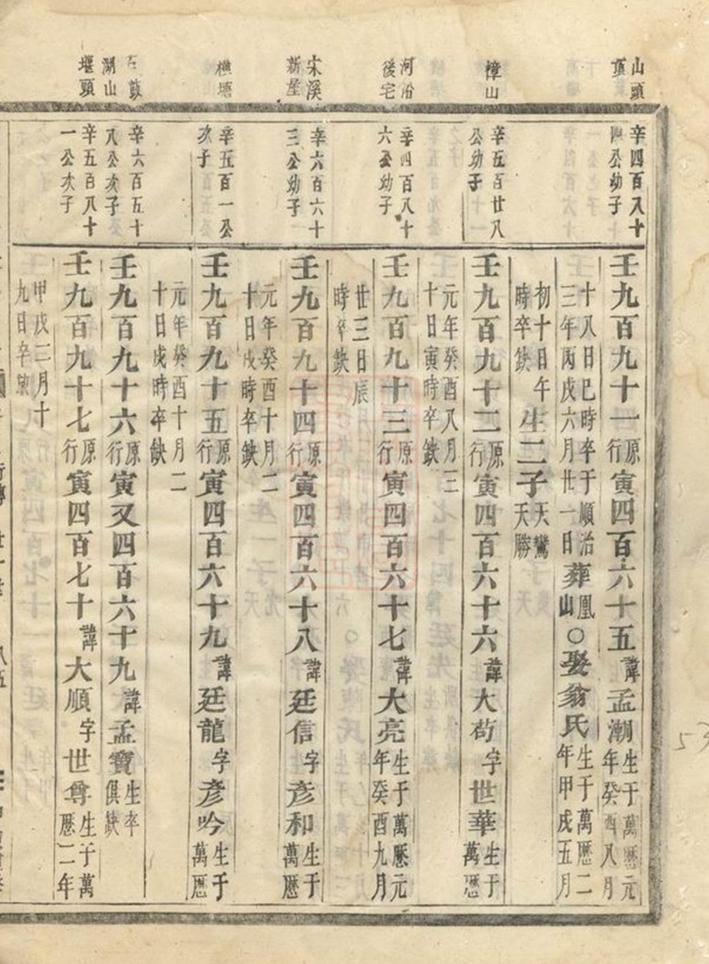 山頭頂
辛四百八十四公幼子
壬九百九十一原行寅四百六十五諱孟潮生于萬厯元年癸酉八月
十八日巳時卒于順治三年丙戌六月廿一日葬鳳山○娶翁氏生于萬厯二年甲戌五月
初十日午時卒缺生二子天鸞天勝
樟山
辛五百廿八公幼子
壬九百九十二原行寅四百六十六諱大苟字世華生于萬厯
元年癸酉八月三十日寅時卒缺
河沿後宅
辛四百八十六公幼子
壬九百九十三原行寅四百六十七諱大亮生于萬厯元年癸酉九月
廿三日辰時卒缺
宋溪新屋
辛六百六十三公幼子
壬九百九十四原行寅四百六十八諱廷信字彥和生于萬厯
元年癸酉十月二十日戌時卒缺
樵塘
辛五百一公次子
壬九百九十五原行寅四百六十九諱廷龍字彥吟生于萬厯
元年癸酉十月二十日戌時卒缺
石鼓湖山
辛六百五十八公次子
壬九百九十六原行寅又四百六十九諱孟寶生卒俱缺
堰頭
辛五百八十一公次子
壬九百九十七原行寅四百七十諱大順字世尊生于萬厯二年
甲戌二月十九日卒缺
行傳
八五
53